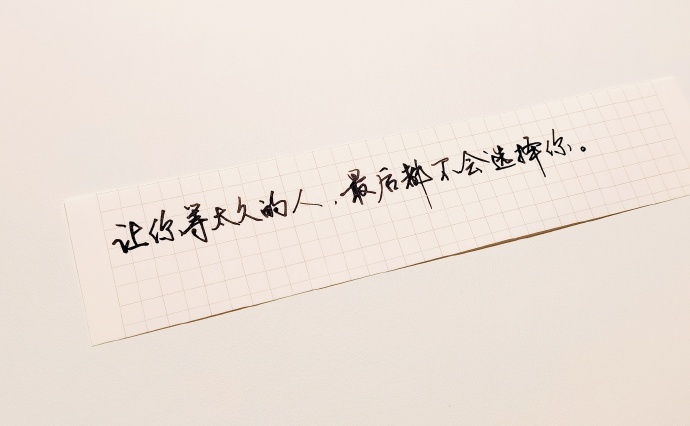 让你等太久的人，最后都不会选择你。